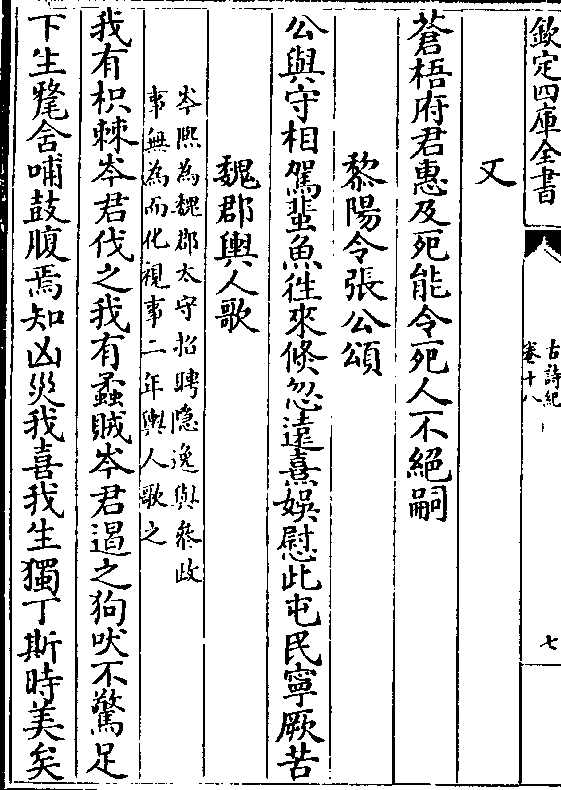 欽定四庫全書
古詩紀
卷十八
七
又
蒼梧府君惠及死能令死人不絕嗣
黎陽令張公頌
公與守相駕蜚魚徃來倐忽遠熹娛慰此屯民寧厥苦
魏郡輿人歌
岑熈為魏郡太守招聘隱逸與叅政
事無為而化視事二年輿人歌之
我有枳棘岑君伐之我有蟊賊岑君遏之狗吠不驚足
下生氂含哺鼓腹焉知凶災我喜我生獨丁斯時美矣